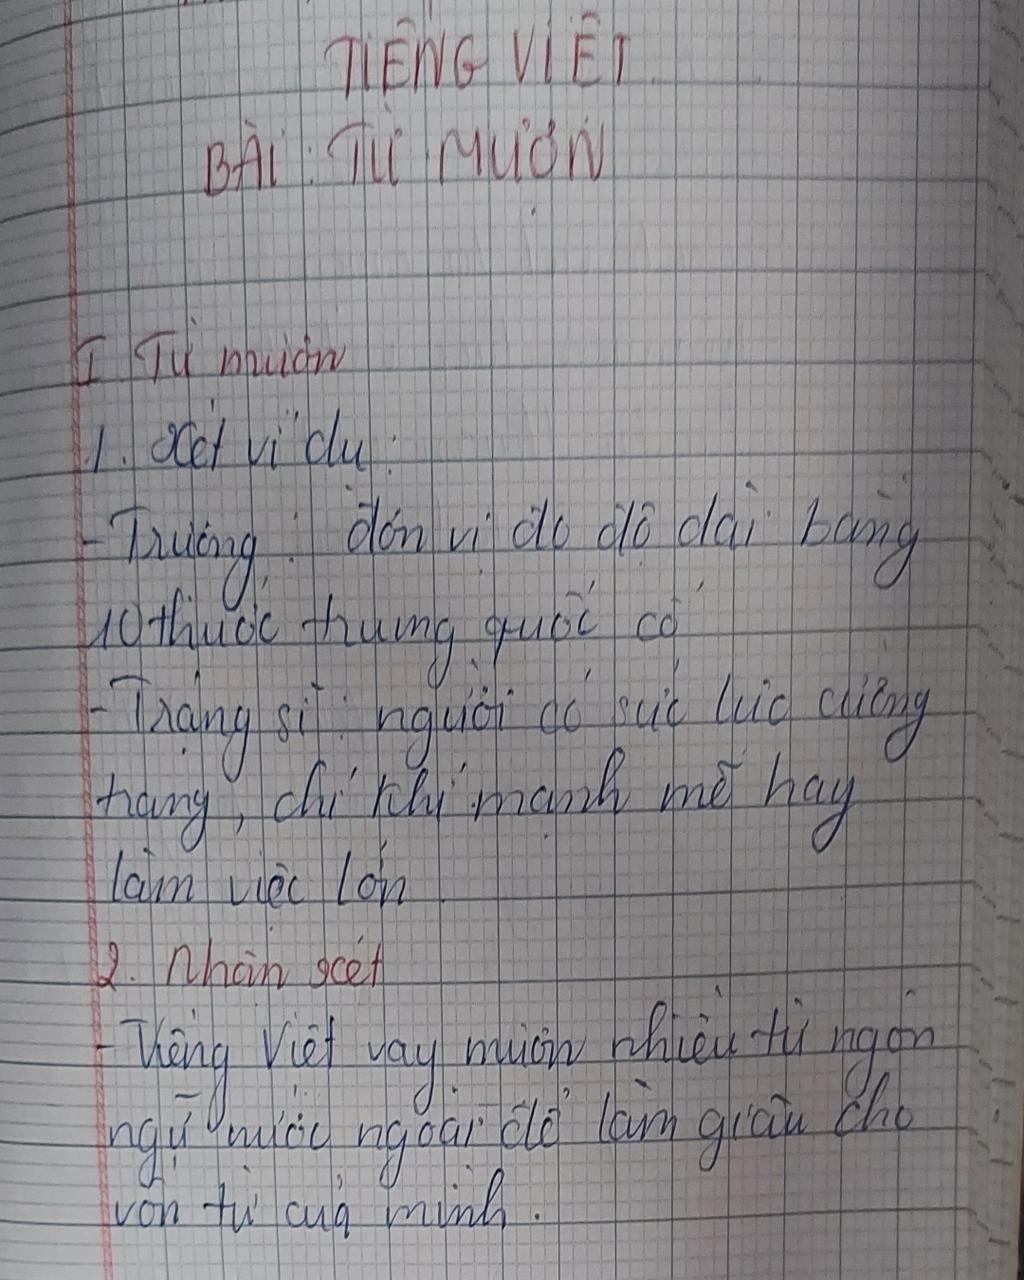 TIẾNG VIỆT
BÀI: TỪ MƯỢN
I. Từ mượn
1. Xét ví dụ:
- Trượng: đơn vị đo độ dài bằng
10 thước trung quốc cổ
- Tráng sĩ: người có sức lực cường
tráng, chí khí mạnh mẽ hay
làm việc lớn
2. Nhận xét
- Tiếng Việt vay mượn nhiều từ ngôn
ngữ nước ngoài để làm giàu cho
vốn từ của mình.